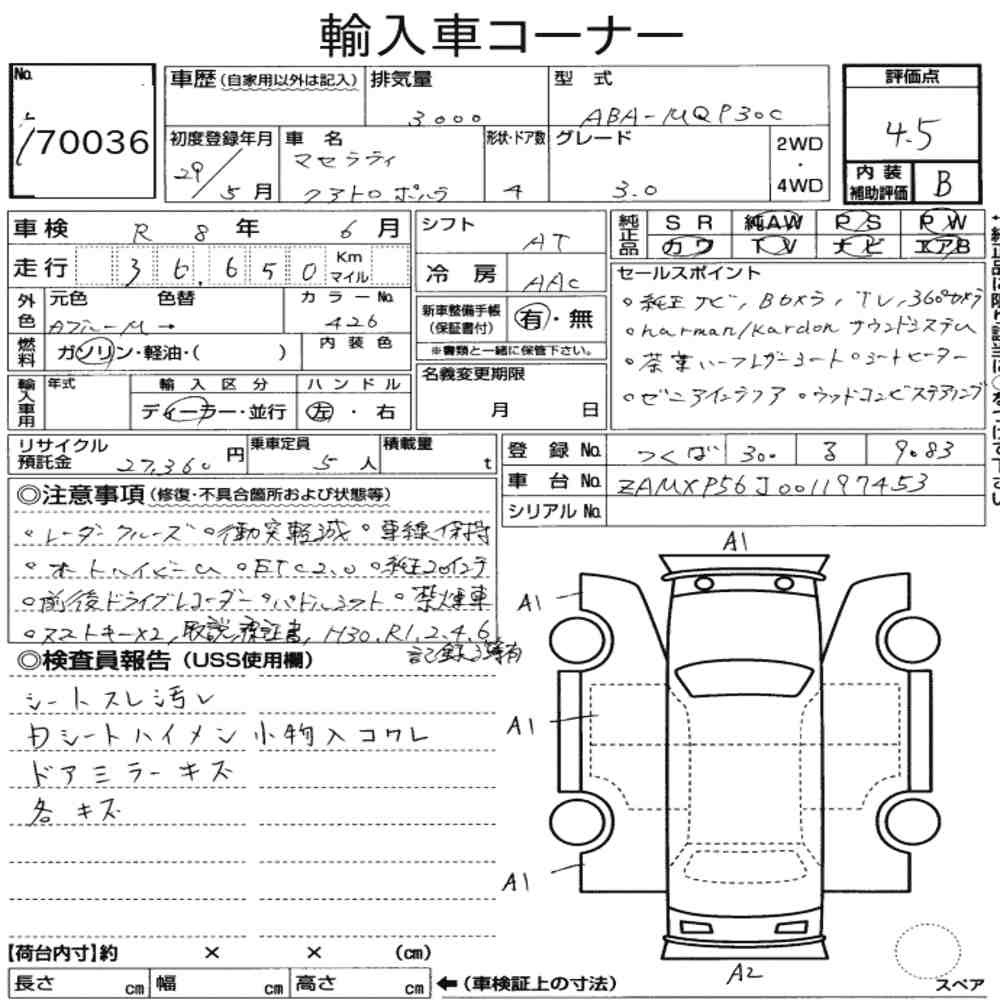 輸入車コーナー
No.
70036
車歴(自家用以外は記入)
排気量
3000
型 式
ABA-MQP30C
初度登録年月
29/5月
車 名
マセラティ
クアトロポルテ
形状・ドア数
4
グレード
3.0
2WD
・
4WD
評価点
4.5
内装補助評価
B
車検 R 8 年 6 月
走行 36,650 Km マイル
シフト
AT
冷 房
AAC
純正品 SR 純AW PS PW
カワ TV ナビ エアB
外色
元色 色替
Aブルー M →
カラーNo.
426
燃料
ガソリン・軽油・( )
内装色
新車整備手帳(保証書付)
有・無
※書類と一緒に保管下さい。
セールスポイント
◦純正ナビ, Bカメラ, TV, 360°カメラ
◦harman/kardon サウンドシステム
◦茶 革ハーフレザーシート ◦シートヒーター
◦ゼニアインテリア ◦ウッドコンビステアリング
輸入車用
年式
輸入区分
ディーラー・並行
ハンドル
左・右
名義変更期限
月 日
リサイクル預託金
27,360円
乗車定員
5人
積載量
t
登 録 No. つくば 300 る 9083
車 台 No. ZAMXP56J001197453
シリアル No.
◎注意事項(修復・不具合箇所および状態等)
◦レーダークルーズ ◦衝突軽減 ◦車線保持
◦オートハイビーム ◦ETC2.0 ◦純正20インチ
◦前後ドライブレコーダー ◦パドルシフト ◦禁煙車
◦スマートキー×2, 取説, 保証書, H30.R1.2.4.6
記録簿有
◎検査員報告(USS使用欄)
シートスレ汚レ
内シートハイメン小物入コワレ
ドアミラーキズ
各キズ
A1
A1
A1
A1
A2
【荷台内寸】約 × × (cm)
長さ cm 幅 cm 高さ cm
←(車検証上の寸法)
スペア